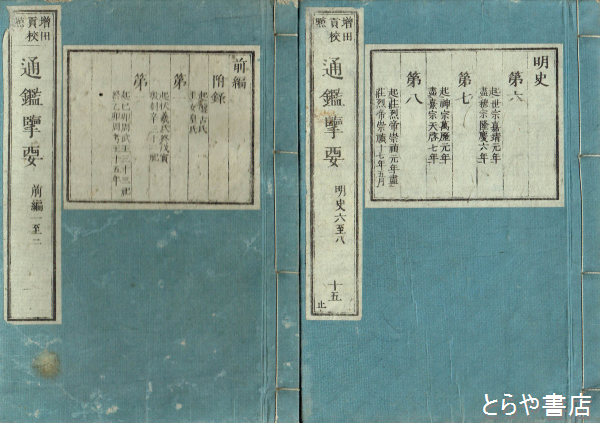 増田
貢校
通鑑擥要
明史六至八
十五
止
明史
第六
起世宗嘉靖元年
盡穆宗隆慶六年
第七
起神宗萬曆元年
盡熹宗天啓七年
第八
起莊烈帝崇禎元年盡
莊烈帝崇禎十七年五月
増田
貢校
通鑑擥要
前編一至二
一
前編
附錄
第
第
とらや書店